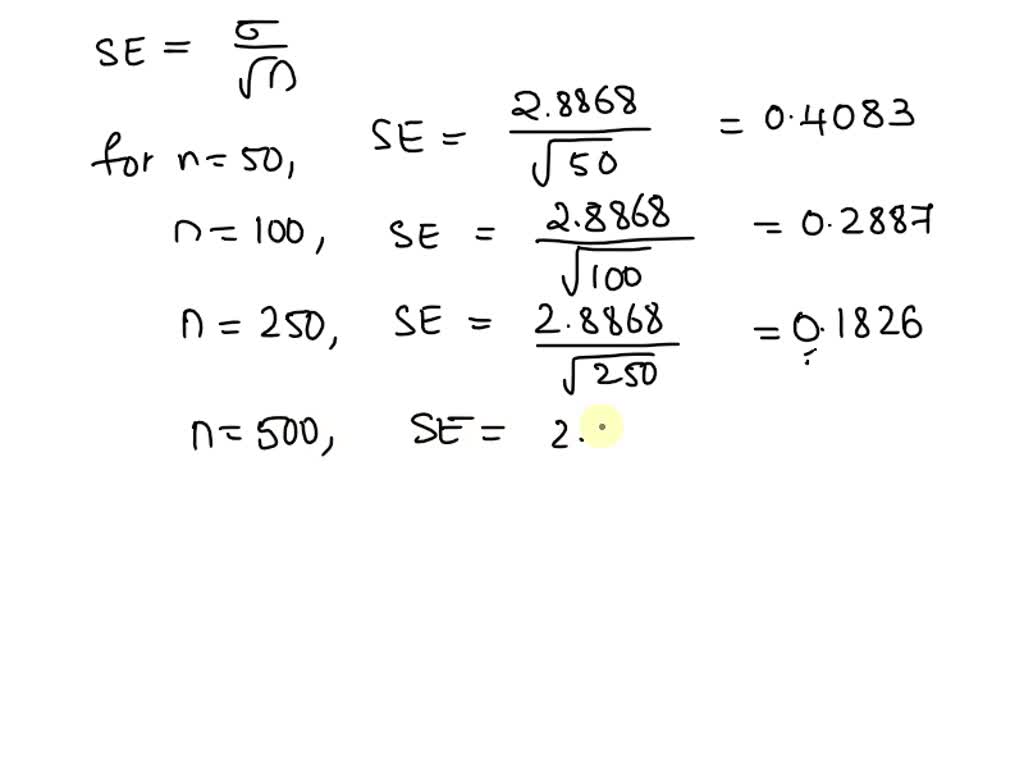 SE = σ/√n
for n = 50, SE = 2.8868/√50 = 0.4083
n = 100, SE = 2.8868/√100 = 0.2887
n = 250, SE = 2.8868/√250 = 0.1826
n = 500, SE = 2.